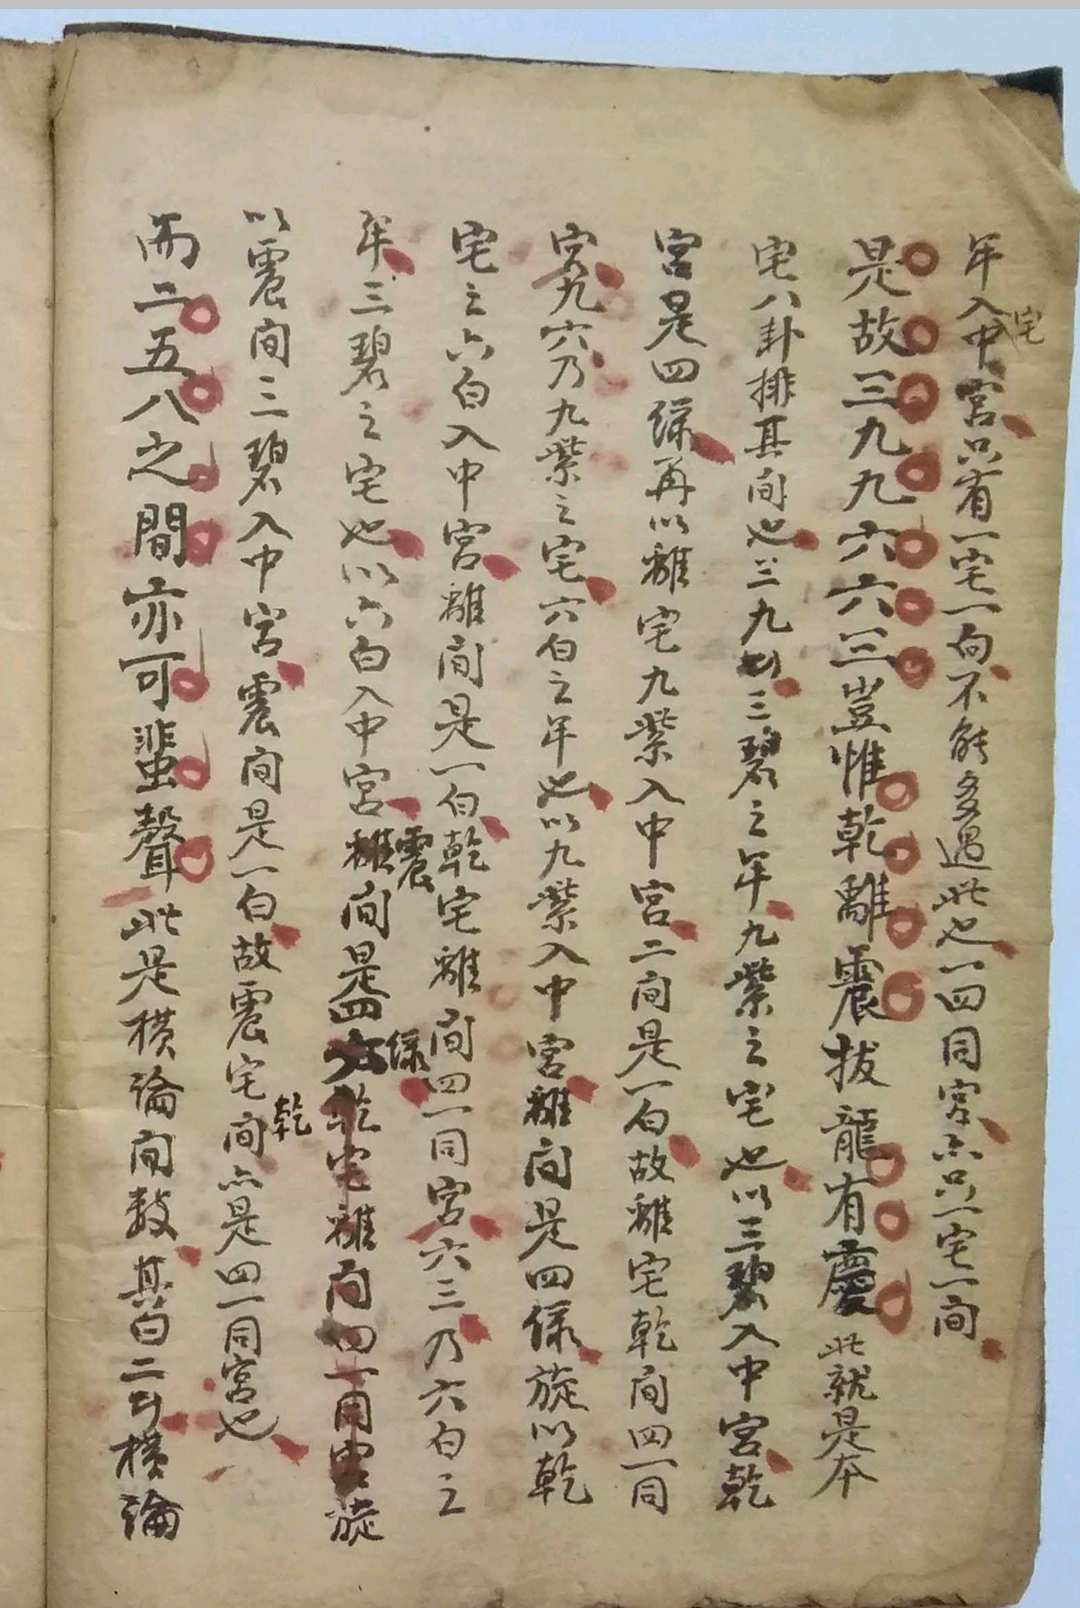 年入中宮只有一宅一向不能多過此也一四同宮亦只一宅一间
宅
是故三九九六六三豈惟乾離震扳龍有慶此就是本
宅八卦排其间也三九時三碧之年九紫之宅也以三碧入中宮乾
宮是四绿再以離宅九紫入中宮二间是一白故離宅乾间四一同
宮九六乃九紫之宅六白之年也以九紫入中宮離间是四绿旋以乾
宅之六白入中宮離间是一白乾宅離间四一同宮六三乃六白之
年三碧之宅也以六白入中宮離间是四乾宅離间四一同宮旋
震
绿
以震间三碧入中宮震间是一白故震宅间亦是四一同宮也
乾
而二五八之間亦可蜚聲此是横論间数其曰二者横論